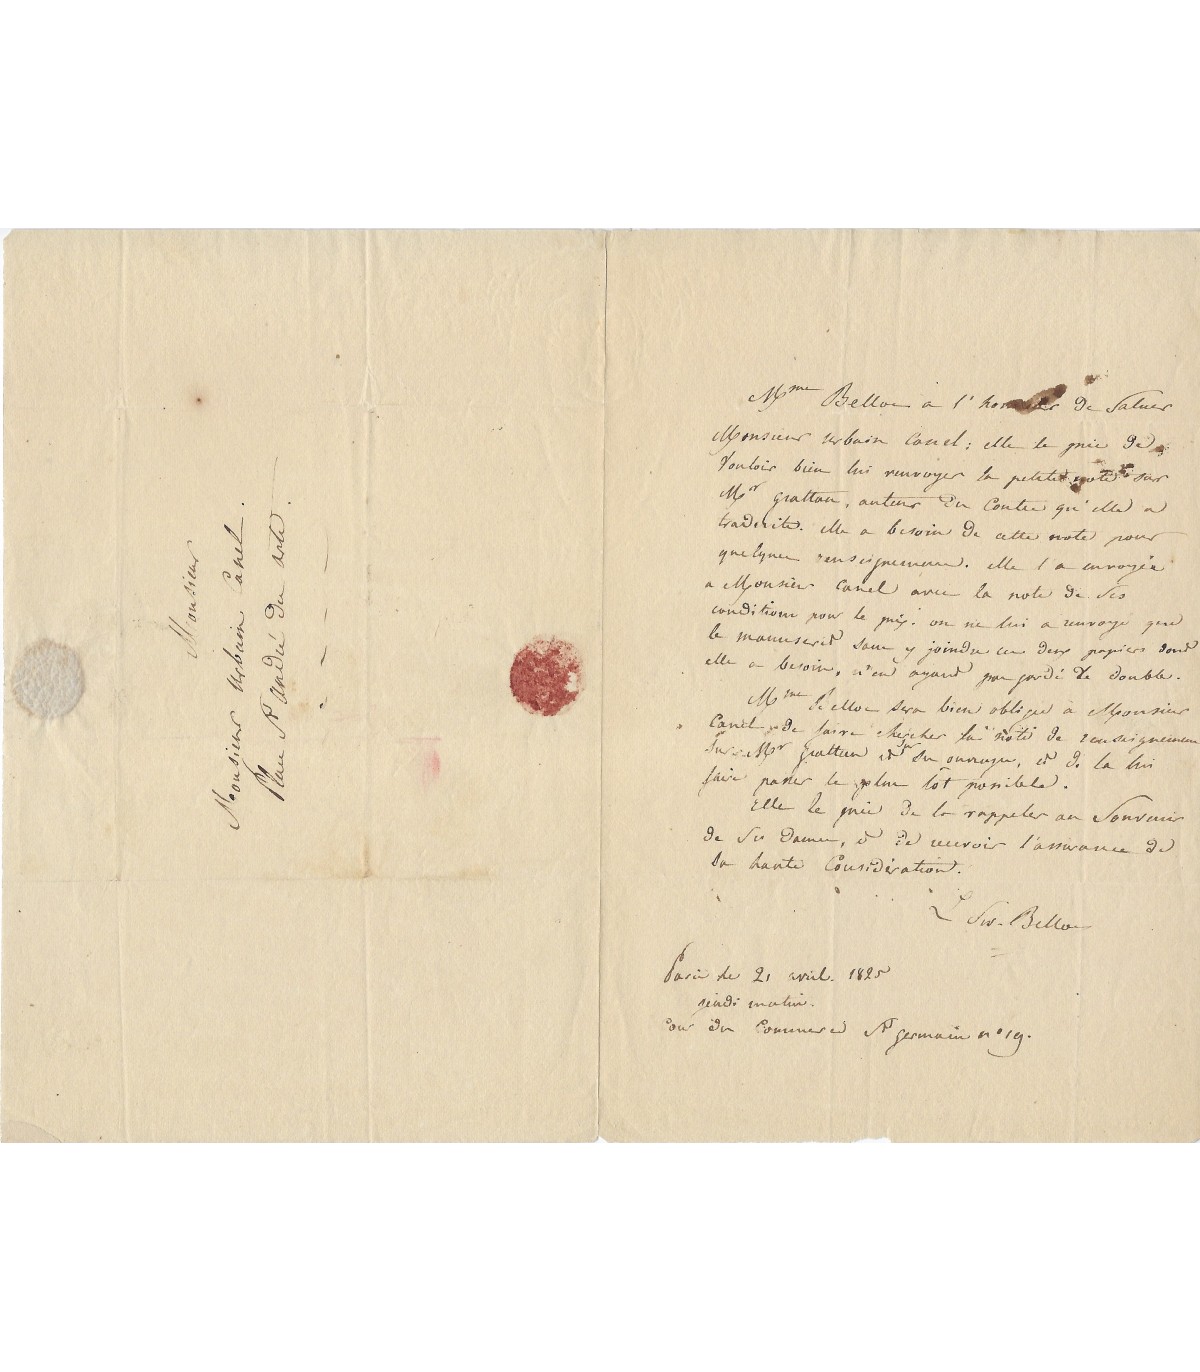 Monsieur
Monsieur Urbain Canel.
Place St André des arts.
Mme Belloc a l'honneur de saluer
Monsieur Urbain Canel; elle le prie de
vouloir bien lui renvoyer la petite note sur
Mr Grattan, auteur du Contes qu'elle a
traduits. elle a besoin de cette note pour
quelques renseignemens. elle l'a envoyée
a Monsieur Canel avec la note de ses
conditions pour le prix. on ne lui a renvoyé que
le manuscrit sans y joindre ces deux papiers dont
elle a besoin, n'en ayant pas gardé de double.
Mme Belloc sera bien obligée à Monsieur
Canel de faire chercher la note de renseignemens
sur Mr Grattan et sur son ouvrage, et de la lui
faire passer le plus tôt possible.
Elle le prie de la rappeler au souvenir
de ses dames, et de recevoir l'assurance de
sa haute considération.
L Sw. Belloc
Paris le 21 avril. 1825
jeudi matin.
cour du commerce St germain no 19.